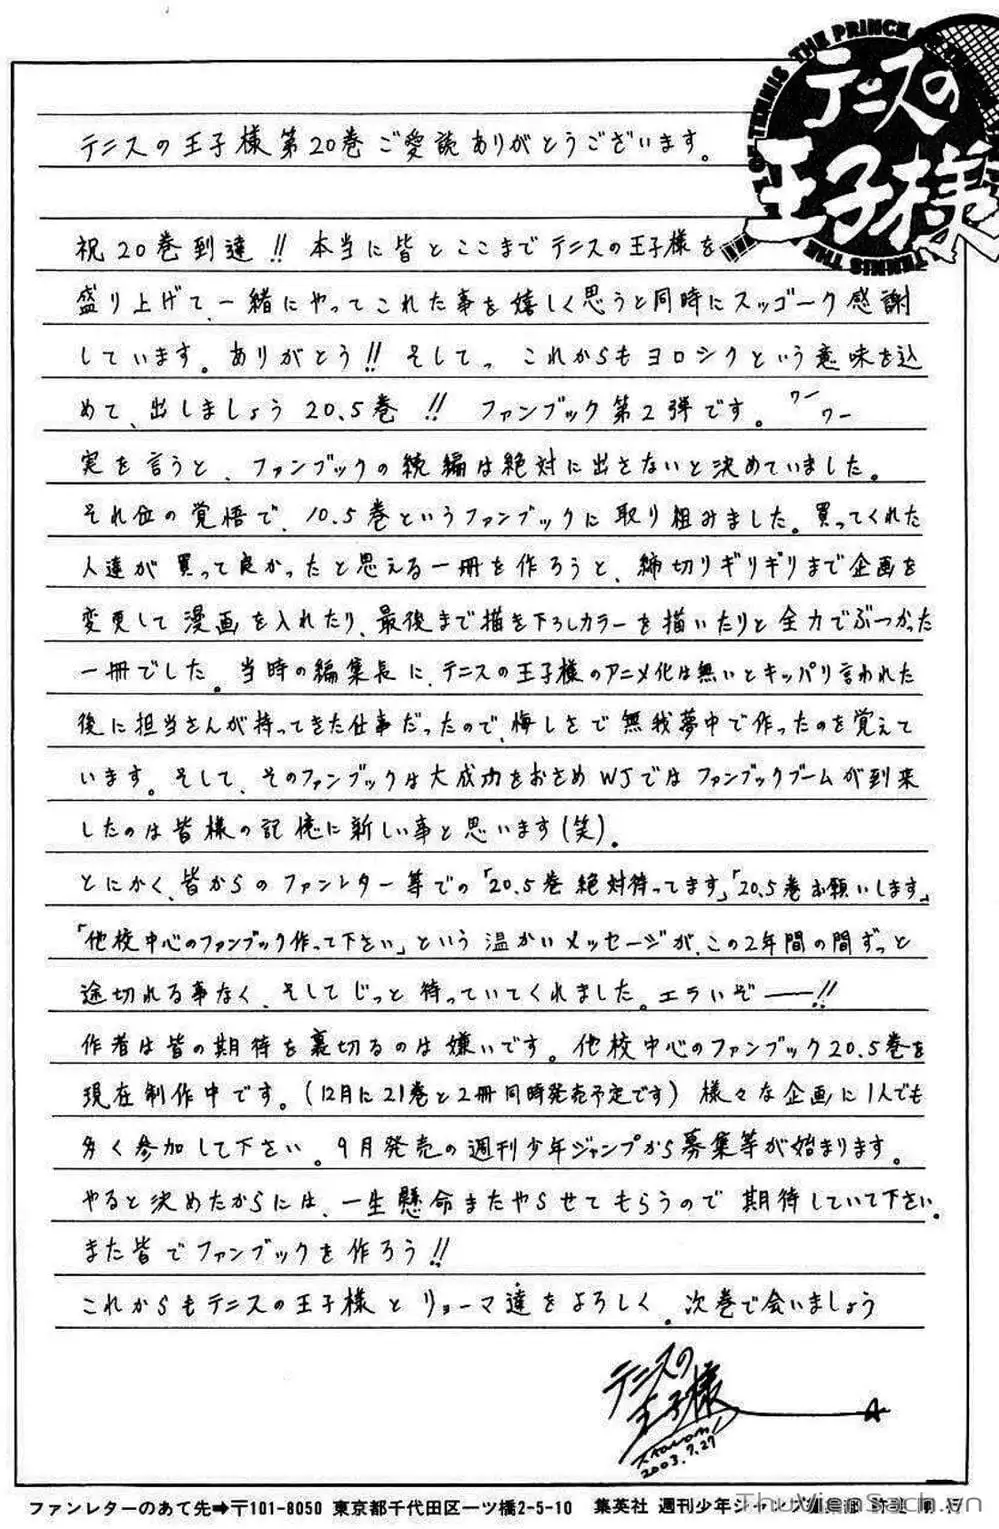 THE PRINCE OF TENNIS
テニスの
王子様
テニスの王子様第20巻ご愛読ありがとうございます。
祝20巻到達!! 本当に皆とここまでテニスの王子様を
盛り上げて、一緒にやってこれた事を嬉しく思うと同時にスッゴーク感謝
しています。ありがとう!! そしてっ これからもヨロシクという意味を込
めて、出しましょう20.5巻!! ファンブック第2弾です。 ワー ワー
実を言うと、ファンブックの続編は絶対に出さないと決めていました。
それ位の覚悟で、10.5巻というファンブックに取り組みました。買ってくれた
人達が買って良かったと思える一冊を作ろうと、締切りギリギリまで企画を
変更して漫画を入れたり、最後まで描き下ろしカラーを描いたりと全力でぶつかった
一冊でした。当時の編集長に、テニスの王子様のアニメ化は無いとキッパリ言われた
後に担当さんが持ってきた仕事だったので、悔しさで無我夢中で作ったのを覚えて
います。そして、そのファンブックは大成功をおさめWJではファンブックブームが到来
したのは皆様の記憶に新しい事と思います(笑)。
とにかく、皆からのファンレター等での「20.5巻絶対待ってます」「20.5巻お願いします」
「他校中心のファンブック作って下さい」という温かいメッセージが、この2年間の間ずっと
途切れる事なく、そしてじっと待っていてくれました。エラいぞー!!
作者は皆の期待を裏切るのは嫌いです。他校中心のファンブック20.5巻を
現在制作中です。(12月に21巻と2冊同時発売予定です) 様々な企画に1人でも
多く参加して下さい。9月発売の週刊少年ジャンプから募集等が始まります。
やると決めたからには、一生懸命またやらせてもらうので期待していて下さい。
また皆でファンブックを作ろう!!
これからもテニスの王子様とリョーマ達をよろしく。次巻で会いましょう
テニスの
王子様
2003.7.27
ファンレターのあて先➡〒101-8050 東京都千代田区一ツ橋2-5-10 集英社 週刊少年ジャンプ
ThuVienSach.vn